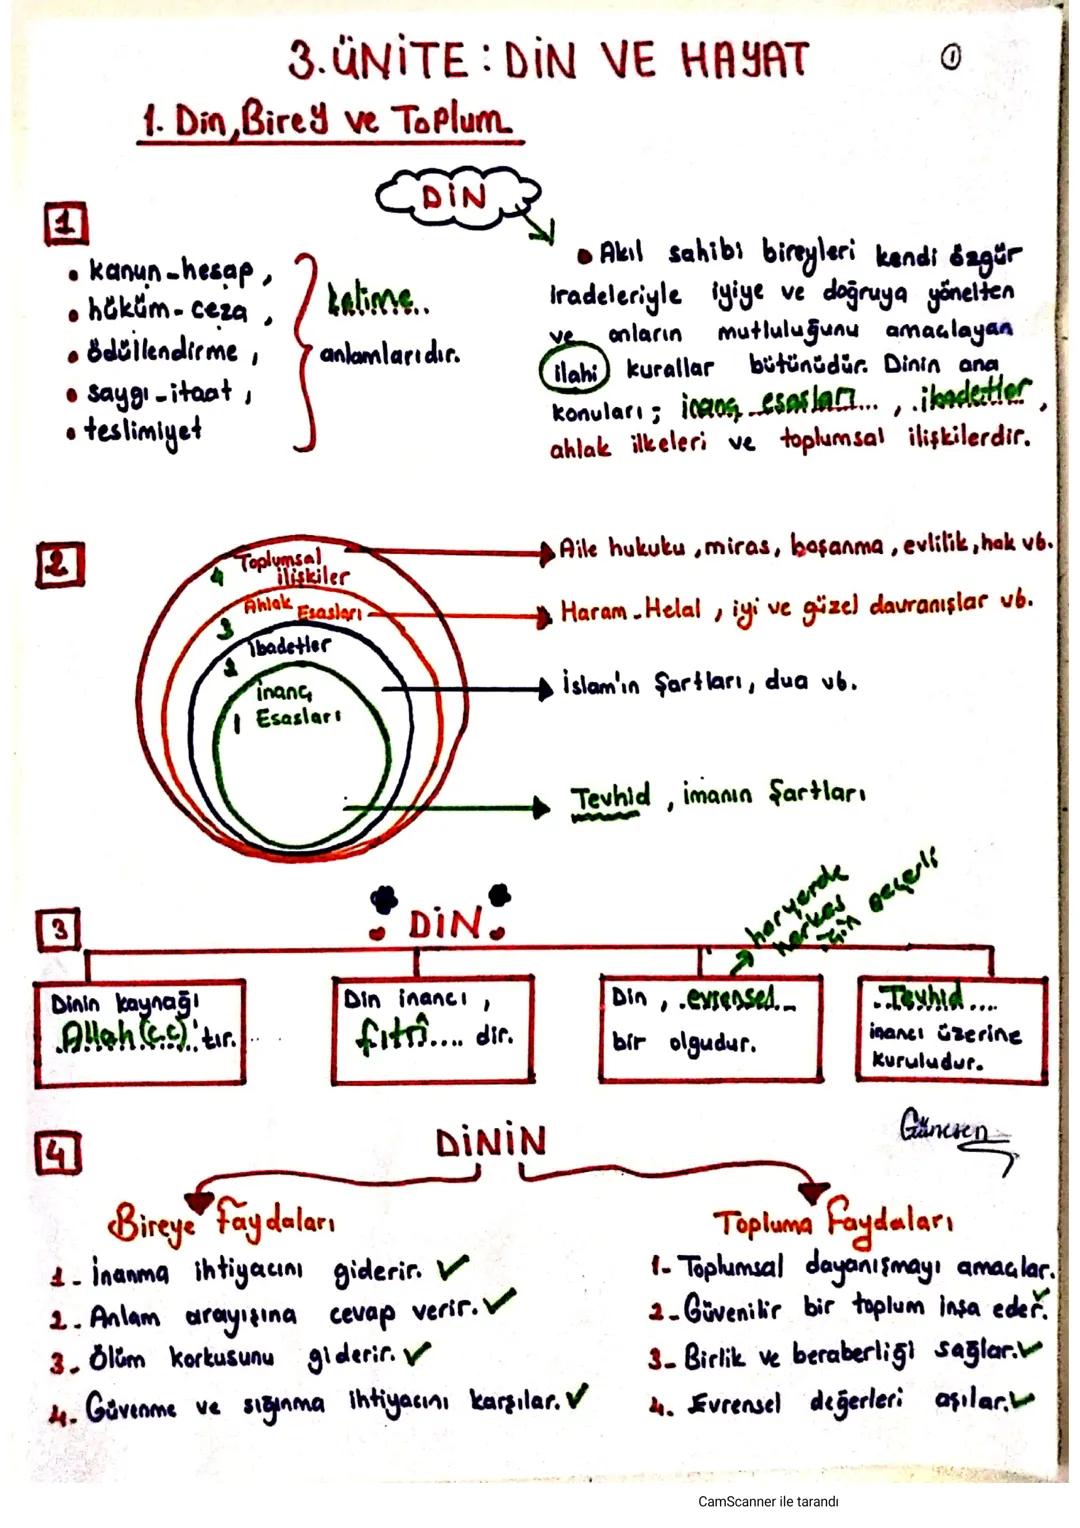 3.ÜNİTE : DİN VE HAYAT
1
1. Din, Birey ve Toplum
DİN
1
• kanun-hesap,
• hüküm-ceza,
• ödüllendirme,
• saygı-itaat,
• teslimiyet
kelime..
anlamlarıdır.
• Akıl sahibi bireyleri kendi özgür
iradeleriyle iyiye ve doğruya yönelten
ve onların mutluluğunu amaçlayan
ilahi kurallar bütünüdür. Dinin ana
konuları; inanç esasları..., ibadetler,
ahlak ilkeleri ve toplumsal ilişkilerdir.
2
4 Toplumsal
ilişkiler
Aile hukuku, miras, boşanma, evlilik, hak vb.
3 Ahlak Esasları
Haram-Helal, iyi ve güzel davranışlar vb.
2 İbadetler
İslam'ın Şartları, dua vb.
1 İnanç
Esasları
Tevhid, imanın Şartları
3
DİN
heryerde
herkes
için geçerli
Dinin kaynağı
Allah (c.c)'tır.
Din inancı,
fıtrî.... dir.
Din, .evrensel...
bir olgudur.
.Tevhid....
inancı üzerine
kuruludur.
4
DİNİN
Bireye Faydaları
1- İnanma ihtiyacını giderir. ✓
2. Anlam arayışına cevap verir. ✓
3. Ölüm korkusunu giderir. ✓
4. Güvenme ve sığınma ihtiyacını karşılar. ✓
Topluma Faydaları
1- Toplumsal dayanışmayı amaçlar. ✓
2- Güvenilir bir toplum inşa eder.
3- Birlik ve beraberliği sağlar. ✓
4. Evrensel değerleri aşılar. ✓
CamScanner ile tarandı